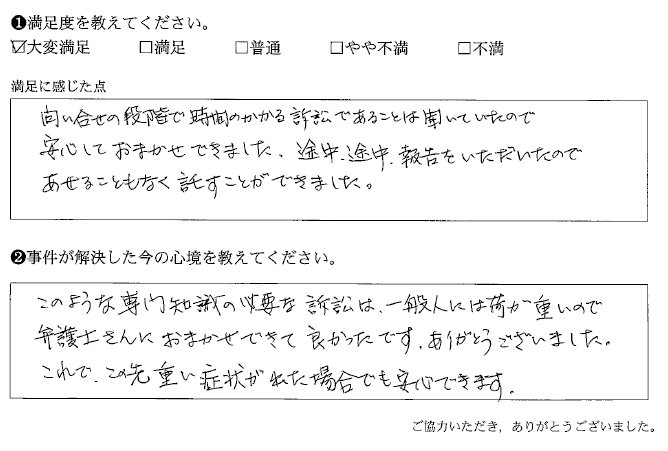 ❶満足度を教えてください。
☑大変満足 □満足 □普通 □やや不満 □不満
満足に感じた点
問い合せの段階で時間のかかる訴訟であることは聞いていたので
安心しておまかせできました、途中、途中、報告をいただいたので
あせることもなく託すことができました。
❷事件が解決した今の心境を教えてください。
このような専門知識の必要な訴訟は、一般人には荷が重いので
弁護士さんにおまかせできて良かったです。ありがとうございました。
これで、この先重い症状が出た場合でも安心できます。
ご協力いただき、ありがとうございました。